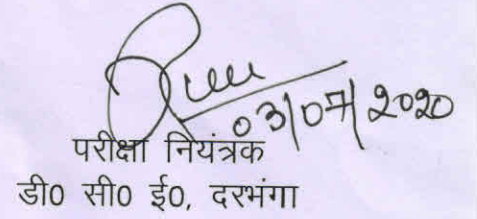 03/07/2020
परीक्षा नियंत्रक
डी0 सी0 ई0, दरभंगा